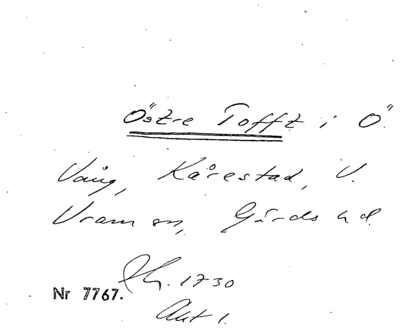 Östre Tofft i Ö.
Vång, Kårestad, V.
Vram sn, Gärds hd.
Lh. 1730
Nr 7767.
Akt 1.